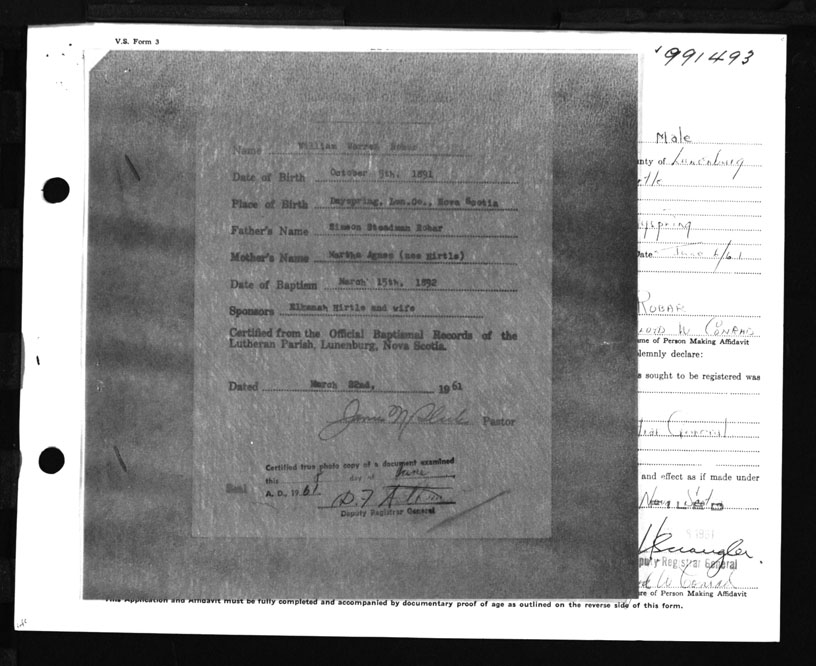 V.S. Form 3
991493
Name William Warren Robar
Date of Birth October 5th, 1891
Place of Birth Dayspring, Lun.Co., Nova Scotia
Father's Name Simeon Steadman Robar
Mother's Name Martha Agnes (nee Hirtle)
Date of Baptism March 15th, 1892
Sponsors Elkanah Hirtle and wife
Certified from the Official Baptismal Records of the
Lutheran Parish, Lunenburg, Nova Scotia.
Dated March 22nd, 1961
Pastor
Certified true photo copy of a document examined
this day of June
A. D., 1961
Seal
Deputy Registrar General
Male
nty of Lunenburg
yspring
Date June 6/61
ROBAR
LOYD W CONRAD
me of Person Making Affidavit
lemnly declare:
s sought to be registered was
General
and effect as if made under
Nova Scotia
puty Registrar General
W Conrad
re of Person Making Affidavit
This Application and Affidavit must be fully completed and accompanied by documentary proof of age as outlined on the reverse side of this form.